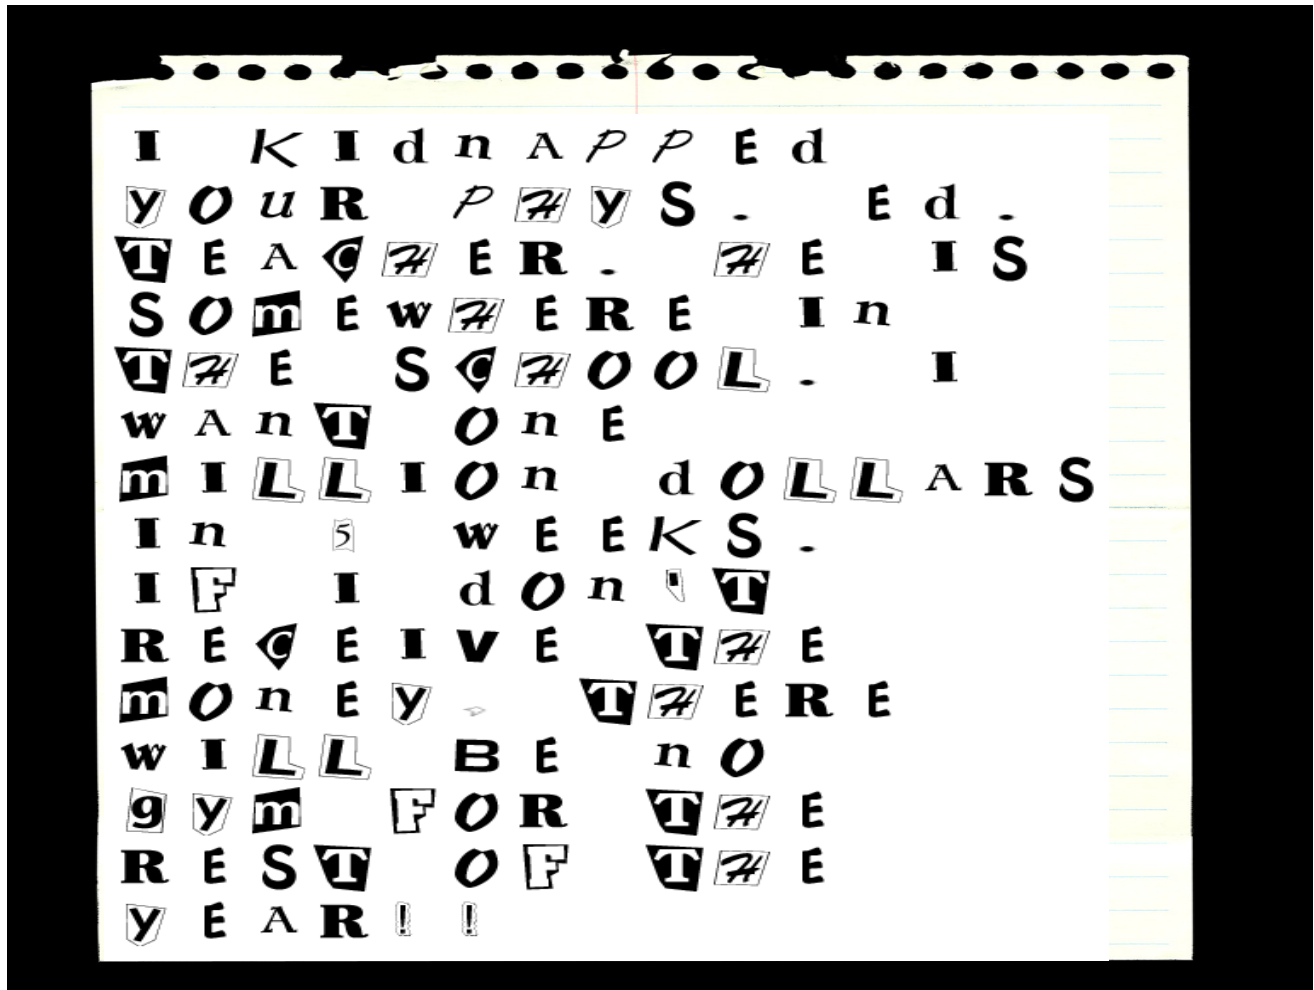 I KIdnAPPEd
yOuR PHyS. Ed.
TEACHER. HE IS
SOmEwHERE In
THE SCHOOL. I
wAnT OnE
mILLIOn dOLLARS
In 5 wEEKS.
IF I dOn'T
RECEIVE THE
mOnEy, THERE
wILL BE nO
gym FOR THE
REST OF THE
yEAR!!